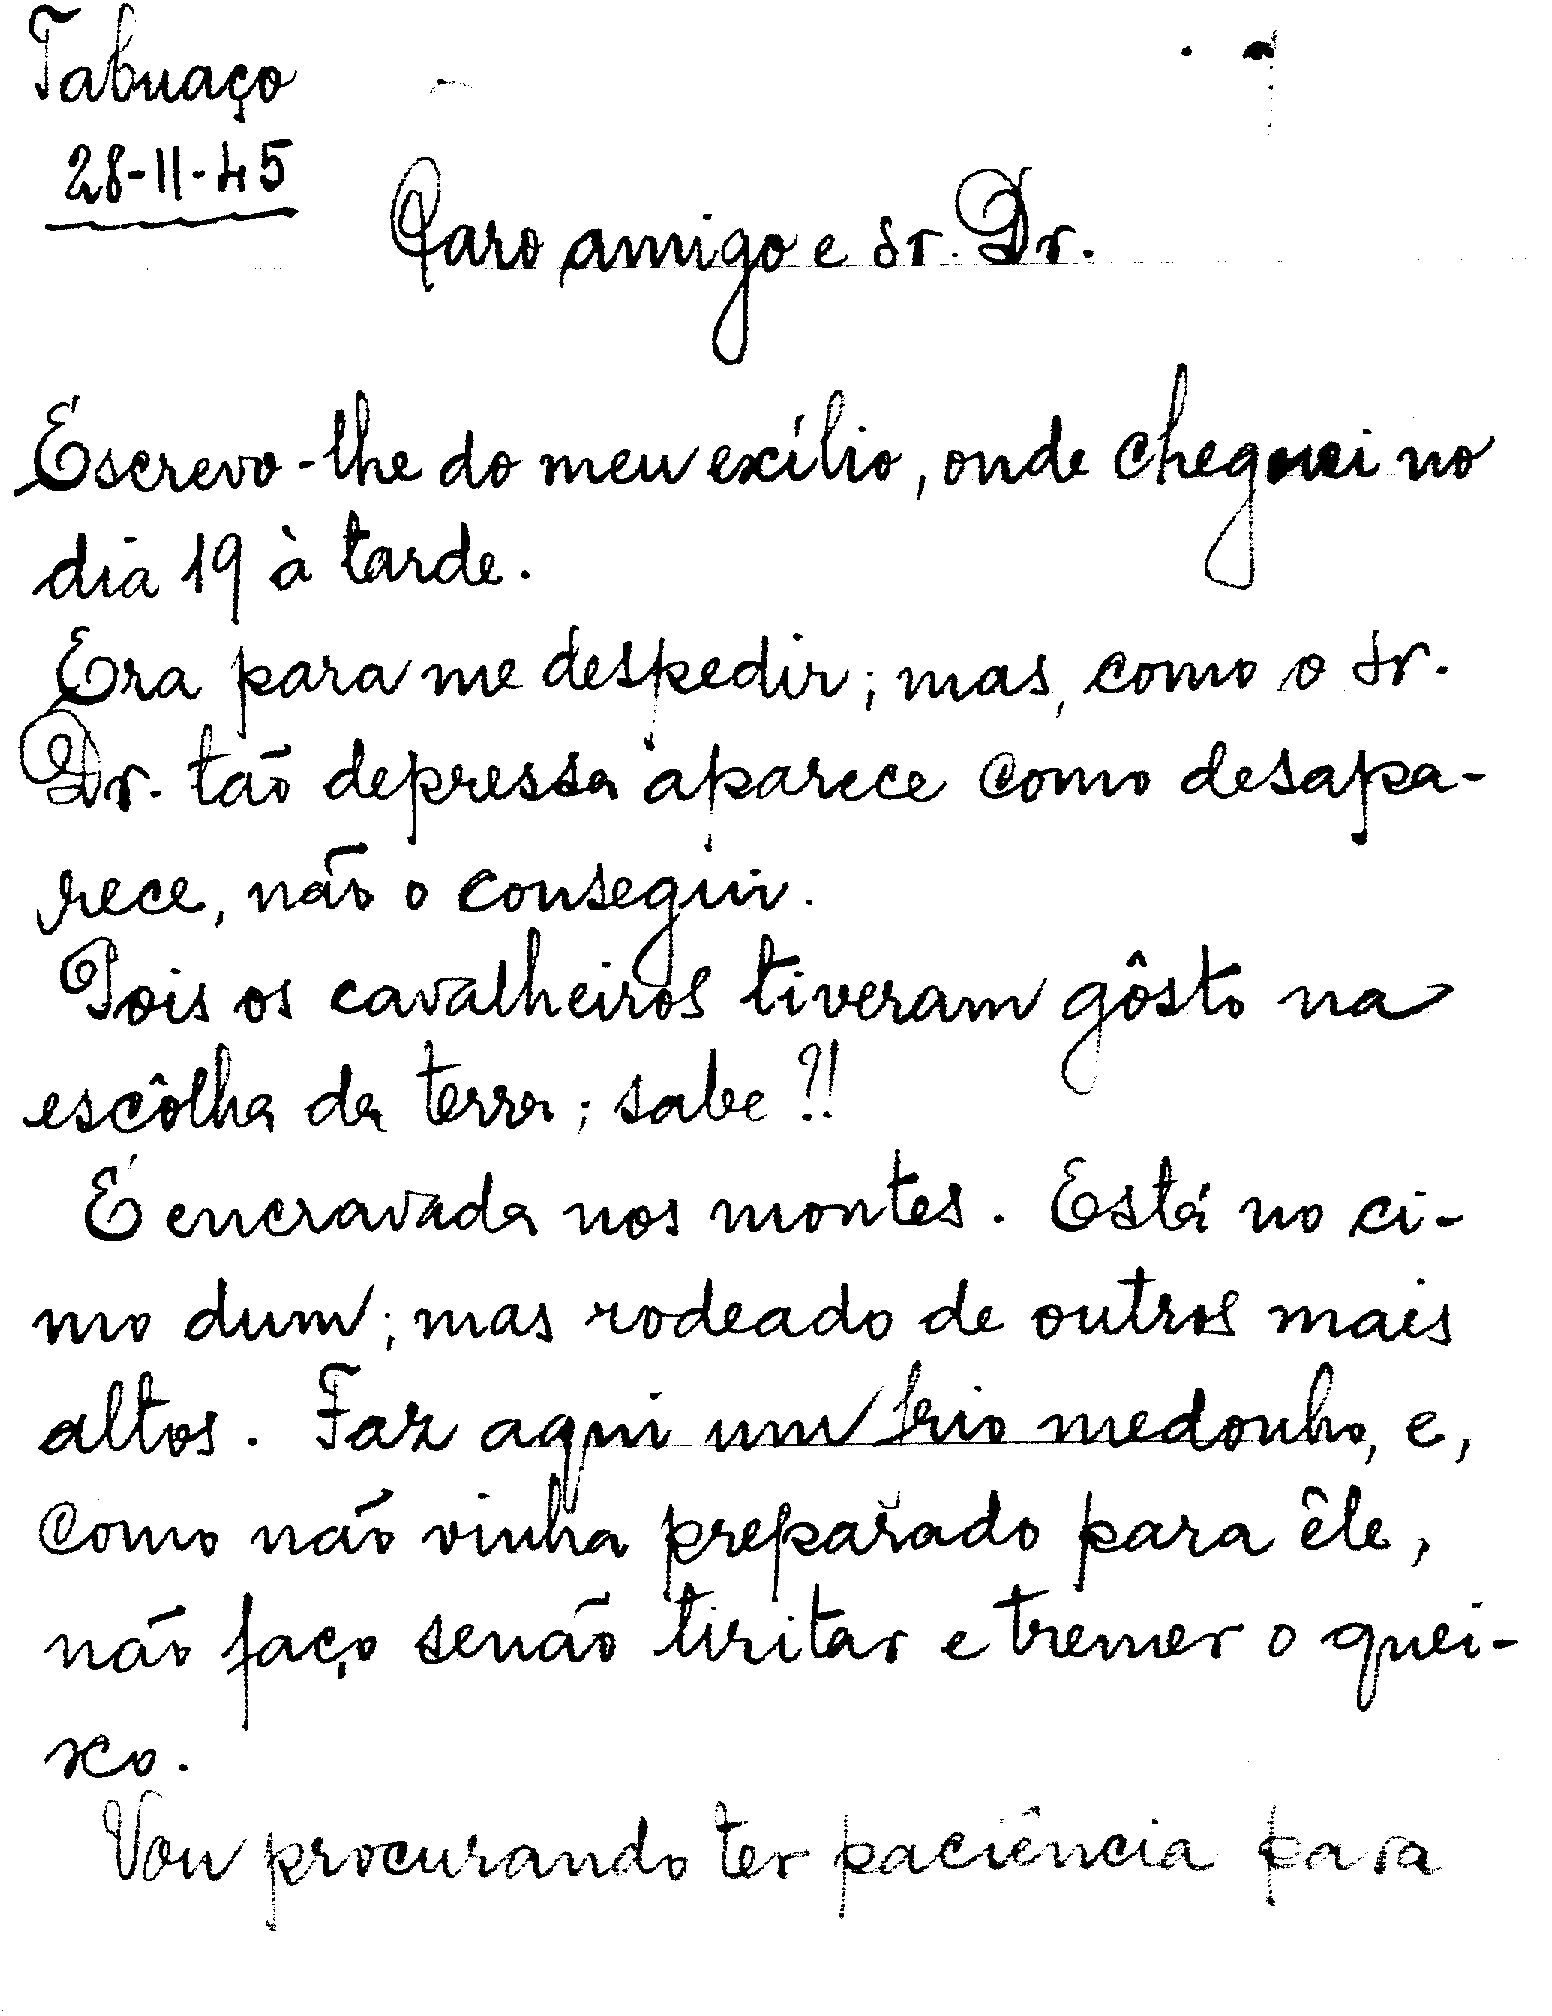 Tabuaço
28-11-45
Caro amigo e sr. Dr.
Escrevo-lhe do meu exílio, onde cheguei no
dia 19 à tarde.
Era para me despedir; mas, como o sr.
Dr. tão depressa aparece como desapa-
rece, não o consegui.
Pois os cavalheiros tiveram gôsto na
escôlha da terra; sabe?!!
É encravada nos montes. Está no ci-
mo dum; mas rodeado de outros mais
altos. Faz aqui um frio medonho, e,
como não vinha preparado para êle,
não faço senão tiritar e tremer o quei-
xo.
Vou procurando ter paciência para